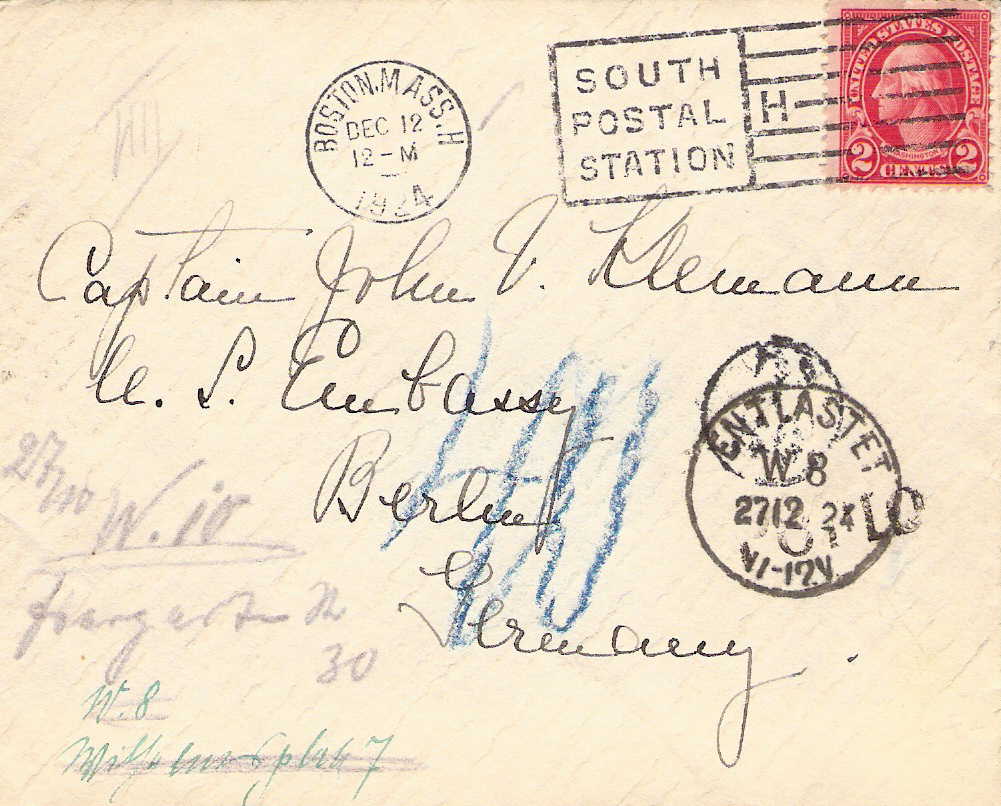 BOSTON, MASS. H
DEC 12
12-M
1924
SOUTH
POSTAL
STATION
H
UNITED STATES POSTAGE
WASHINGTON
2 CENTS 2
Captain John V. Klemann
U. S. Embassy
Berlin
Germany.
ENTLASTET
W 8
27 12 24
W. 10
30
W. 8
Wilhelmsplatz 7